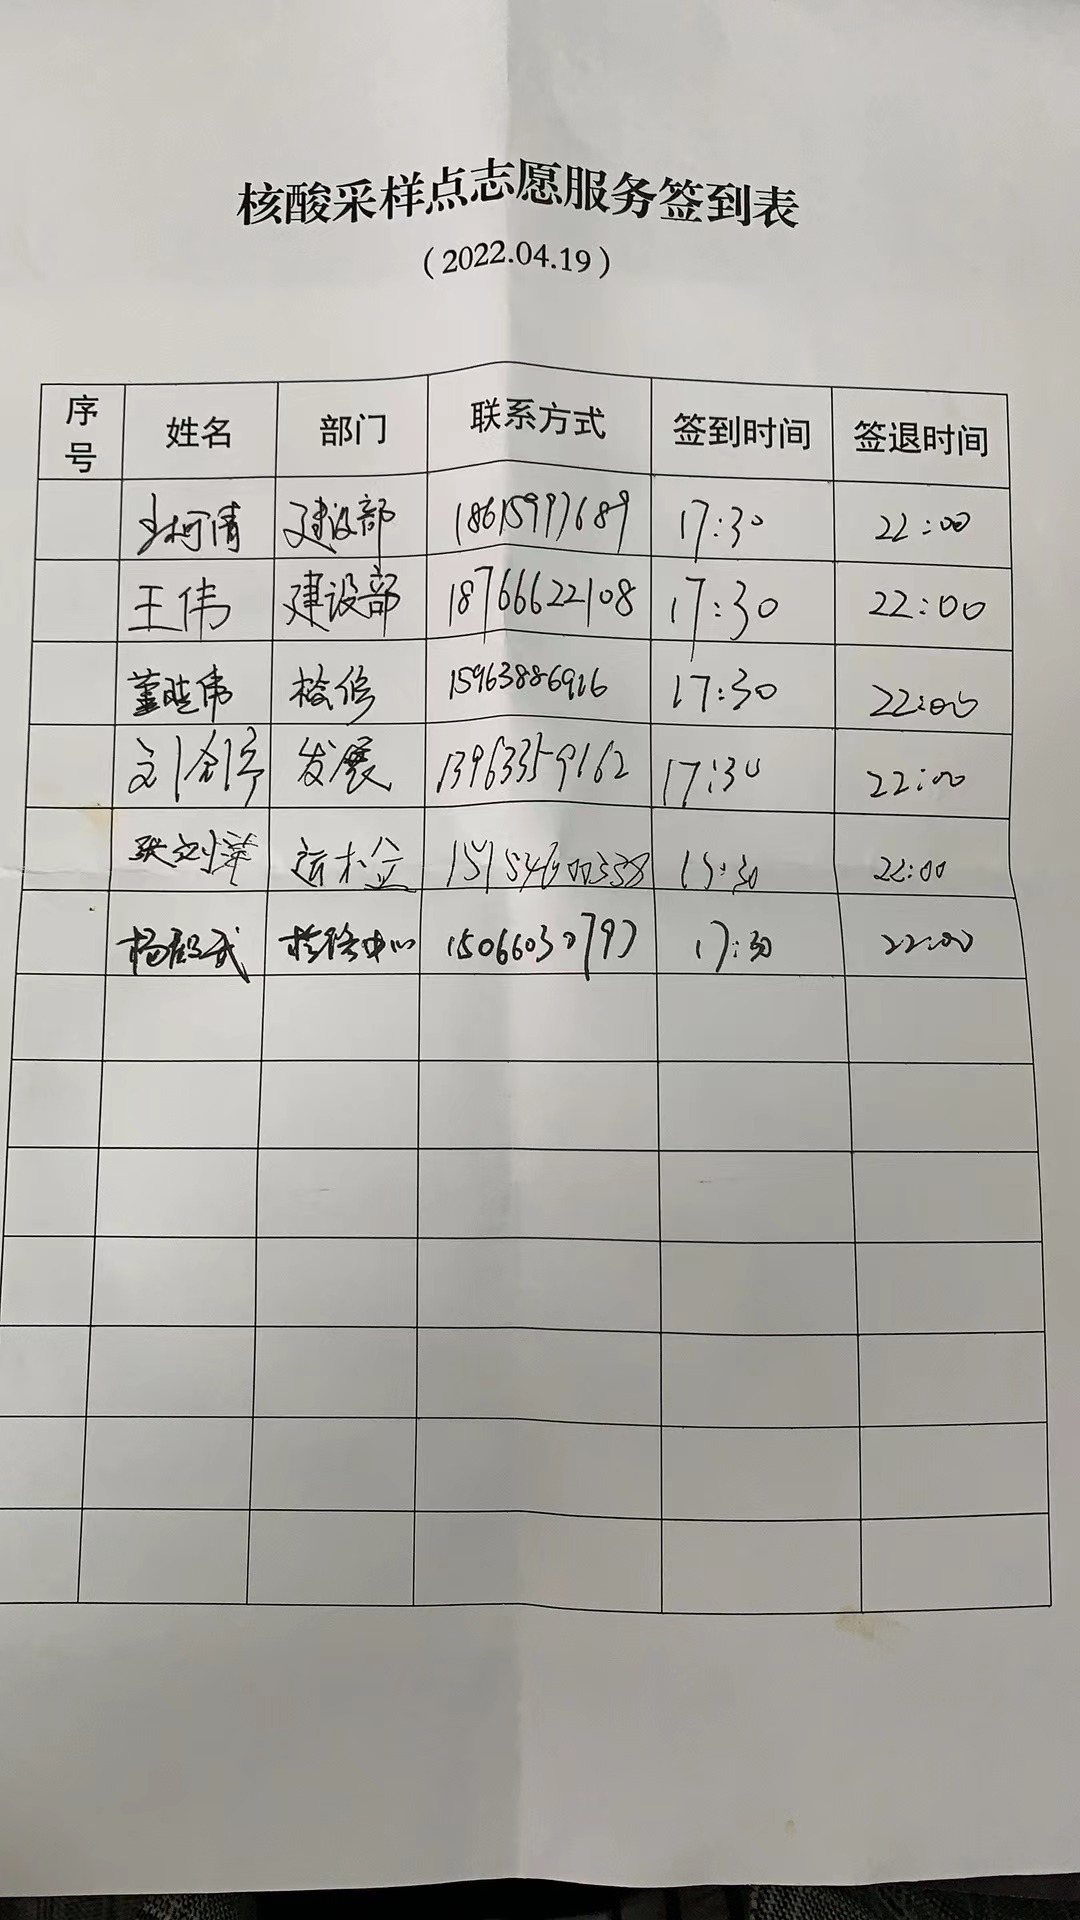 核酸采样点志愿服务签到表
（2022.04.19）
序号 姓名 部门 联系方式 签到时间 签退时间
王柯倩 建设部 18615997689 17:30 22:00
王伟 建设部 18766622108 17:30 22:00
董晓伟 检修 15963886916 17:30 22:00
刘创亭 发展 13963359162 17:30 22:00
张 运检 15154600338 22:00
杨 武 检修中心 15066030797 17:30 22:00